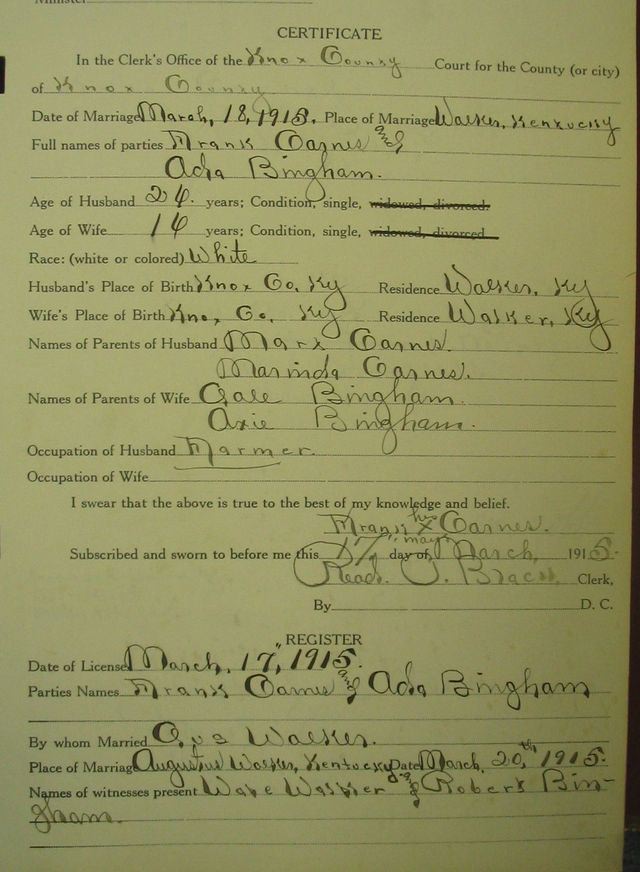 Minister
CERTIFICATE
In the Clerk's Office of the Knox County Court for the County (or city)
of Knox County
Date of Marriage March, 18, 1915. Place of Marriage Walker, Kentucky
Full names of parties Frank Carnes and
Ada Bingham.
Age of Husband 24. years; Condition, single, widowed, divorced.
Age of Wife 16 years; Condition, single, widowed, divorced
Race: (white or colored) White
Husband's Place of Birth Knox Co, Ky Residence Walker, Ky
Wife's Place of Birth Knox Co, Ky Residence Walker, Ky
Names of Parents of Husband Marx Carnes.
Marinda Carnes.
Names of Parents of Wife Gale Bingham.
Axie Bingham.
Occupation of Husband Farmer.
Occupation of Wife
I swear that the above is true to the best of my knowledge and belief.
Frank his X Carnes.
mark
Subscribed and sworn to before me this 17, day of March, 1915.
Read. Clerk,
By D. C.
REGISTER
Date of License March, 17, 1915.
Parties Names Frank Carnes & Ada Bingham
By whom Married Walker.
Place of Marriage Walker, Kentucky Date March, 20th, 1915.
Names of witnesses present Walker & Robert Bin-
gham.